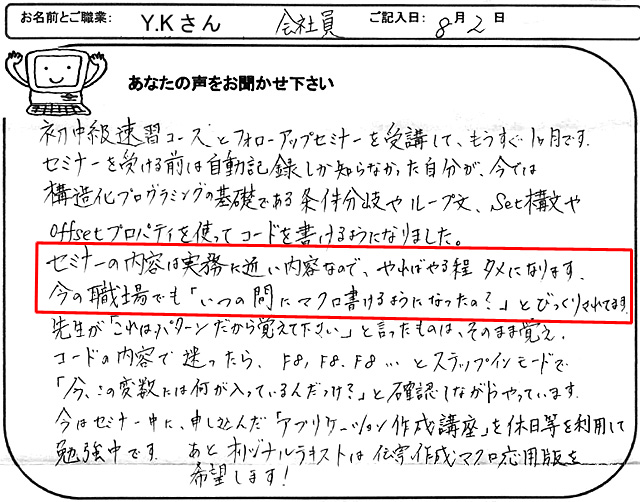 お名前とご職業: Y.Kさん 会社員 ご記入日: 8月2日
あなたの声をお聞かせ下さい
初中級速習コースとフォローアップセミナーを受講して、もうすぐ1ヶ月です。
セミナーを受ける前は自動記録しか知らなかった自分が、今では
構造化プログラミングの基礎である条件分岐やループ文、Set構文や
Offsetプロパティを使ってコードを書けるようになりました。
セミナーの内容は実務に近い内容なので、やればやる程 タメになります。
今の職場でも「いつの間にマクロ書けるようになったの?」とびっくりされてます。
先生が「これはパターンだから覚えて下さい」と言ったものは、そのまま覚え、
コードの内容で迷ったら、F8, F8, F8 … とステップインモードで
「今、この変数には何が入っているんだっけ?」と確認しながらやっています。
今はセミナー中に、申し込んだ「アプリケーション作成講座」を休日等を利用して
勉強中です。 あと オリジナルテキストは 伝票作成マクロ応用版を
希望します!